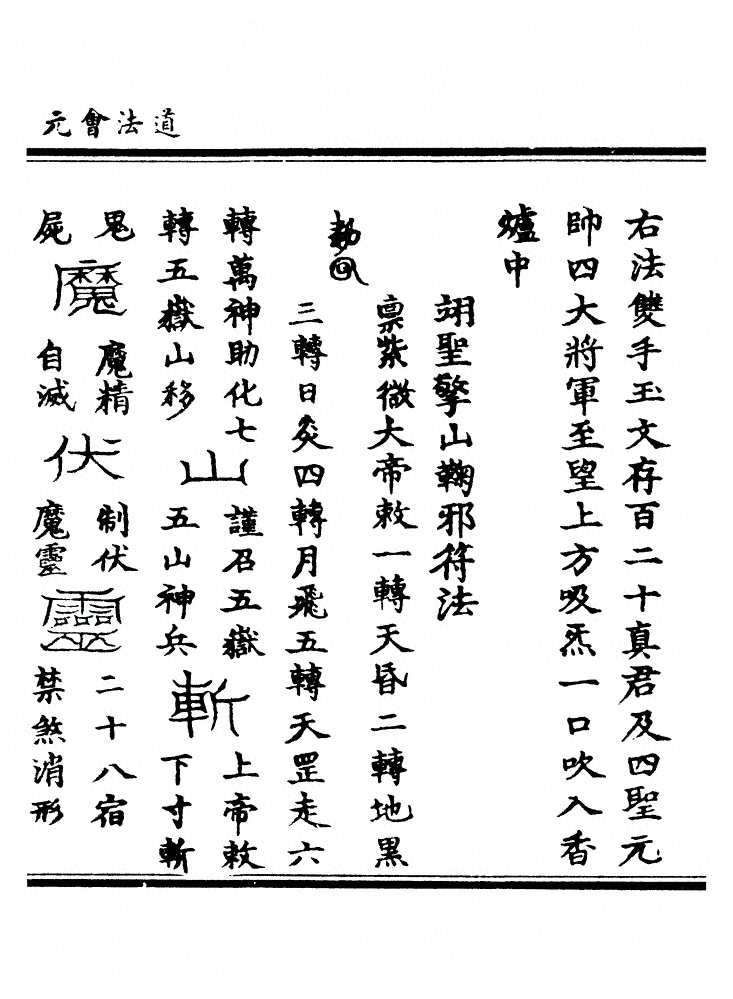 道法會元
右法雙手玉文存百二十真君及四聖元
帥四大將軍至望上方吸炁一口吹入香
爐中
翊聖擎山鞫邪符法
稟紫微大帝敕一轉天昏二轉地黑
三轉日炎四轉月飛五轉天罡走六
轉萬神助化七
轉五嶽山移
山
謹召五嶽
五山神兵
斬
上帝敕
下寸斬
鬼
屍
魔
魔精
自滅
伏
制伏
魔靈
靈
二十八宿
禁煞消形